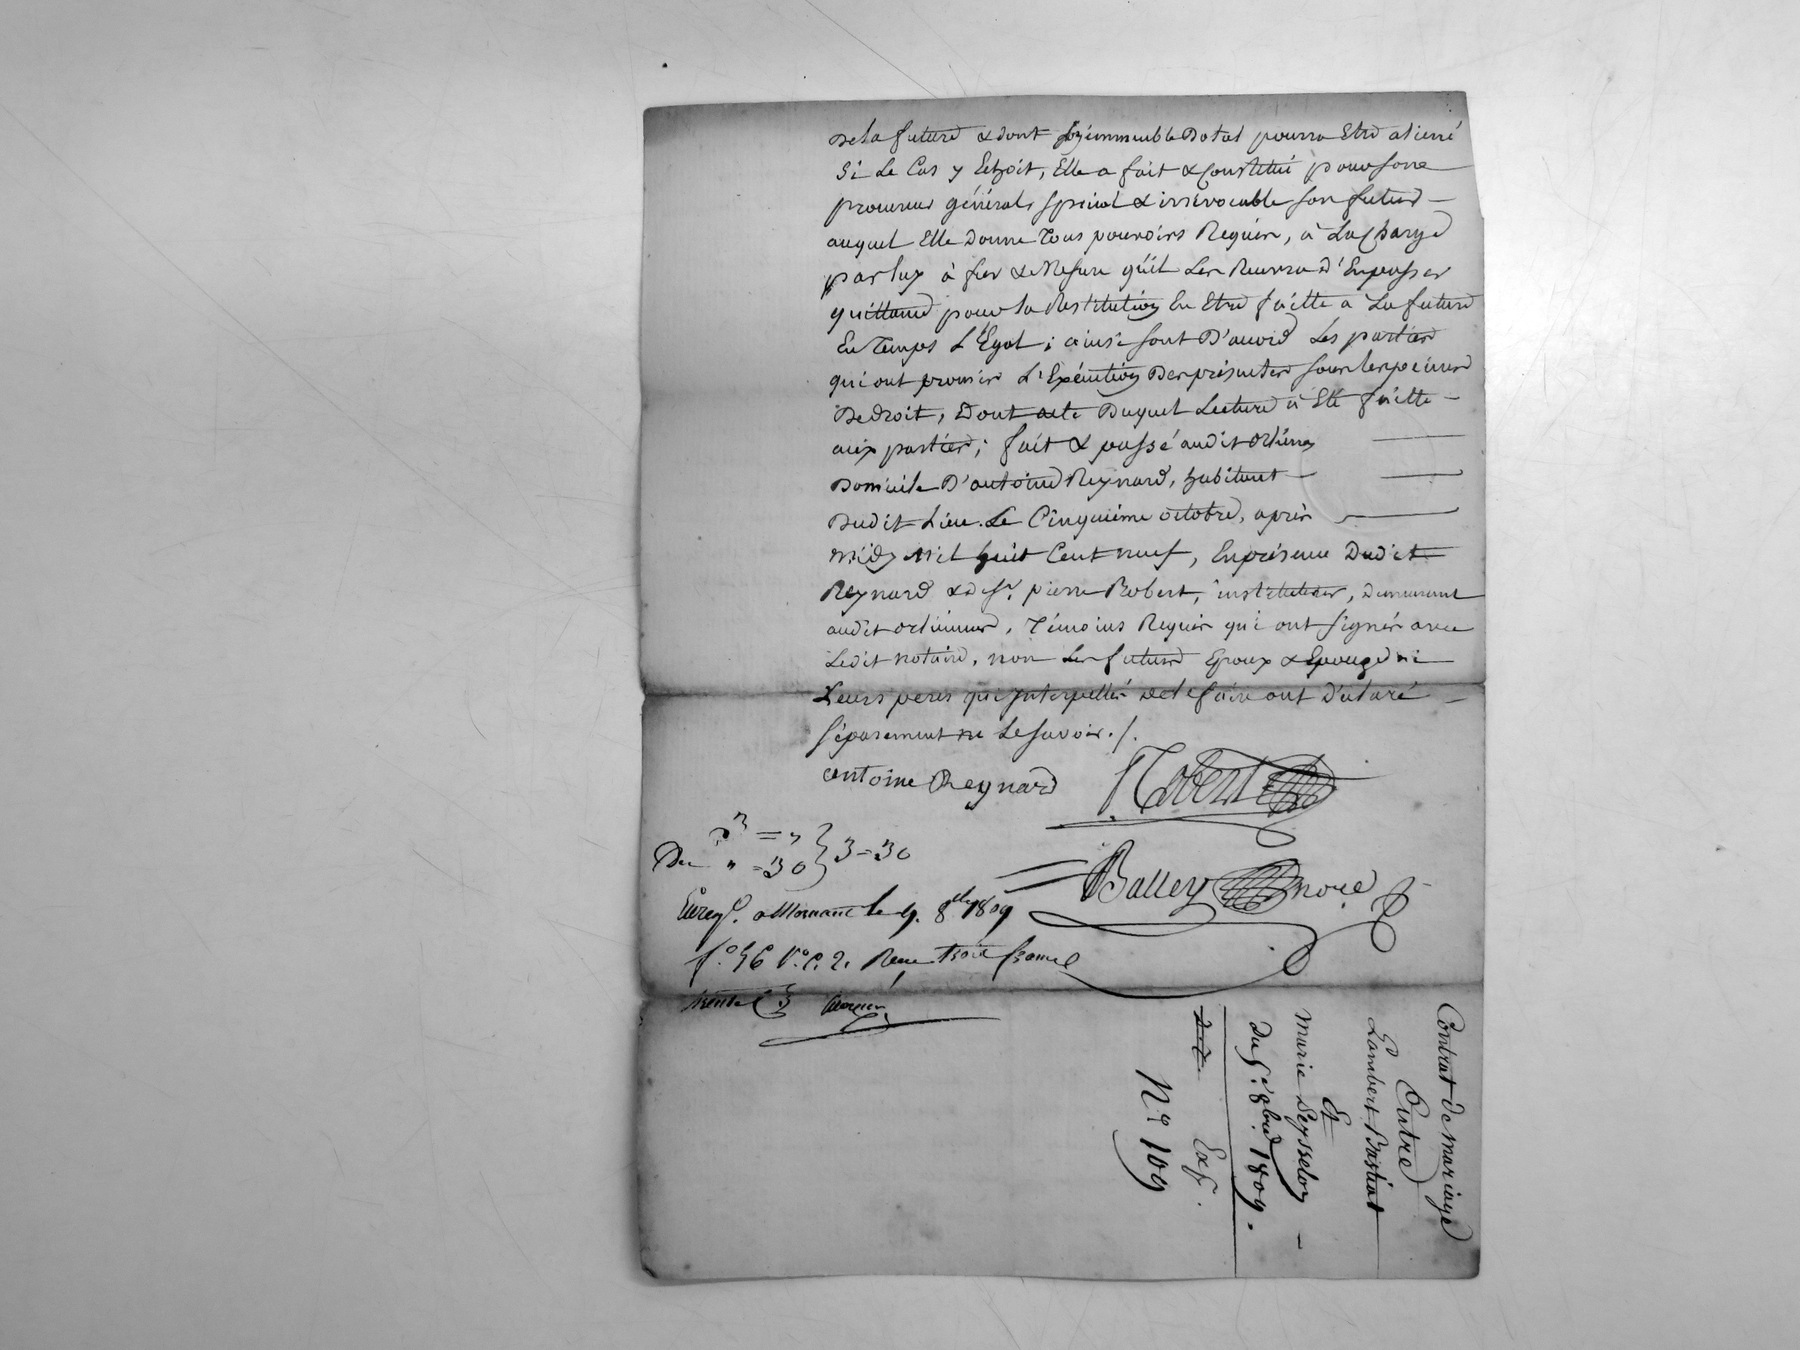 De la future & dont l'immeuble Dotal pourra Etre aliené
Si Le Cas y Echoit, Elle a fait & Constitué pour son
procureur général, spécial & irrévocable son futur —
auquel Elle Donne Tous pouvoirs Requis, à La Charge
par luy à fur & Mesure qu'il Les Recevra d'En passer
quittance pour la Restitution En Etre faitte a La future
En Temps & Egal ; ainsi sont D'accord Les parties
qui ont promis L'Exécution Des présentes sous les peines
De droit, Dont acte Duquel Lecture à Eté faitte —
aux parties ; fait & passé audit Orliénas
Domicile D'antoine Reynard, habitant —
Dudit Lieu. Le Cinquième octobre, après
midy Mil huit Cent neuf, En présence Dudit
Reynard & de Sr. pierre Robert, instituteur, Demeurant
audit orliennas, Témoins Requis qui ont signés avec
Ledit notaire, non Les futurs Epoux & Epouse ni
Leurs peres qui Interpellés de le faire ont Déclaré —
séparement ne Le savoir. /.
antoine Reynard
Robert
Du 3 = "
" = 30 } 3 = 30
Balley nore
Enregé. a Mornant le 9. 8bre 1809
fo. 56 Vo. C. 2. Reçu trois francs
trente C.
Contrat de Mariage
Entre
Lambert Bastiat
Et
Marie Seysselon —
Du 5. 8bre 1809.
Exp.
No 109